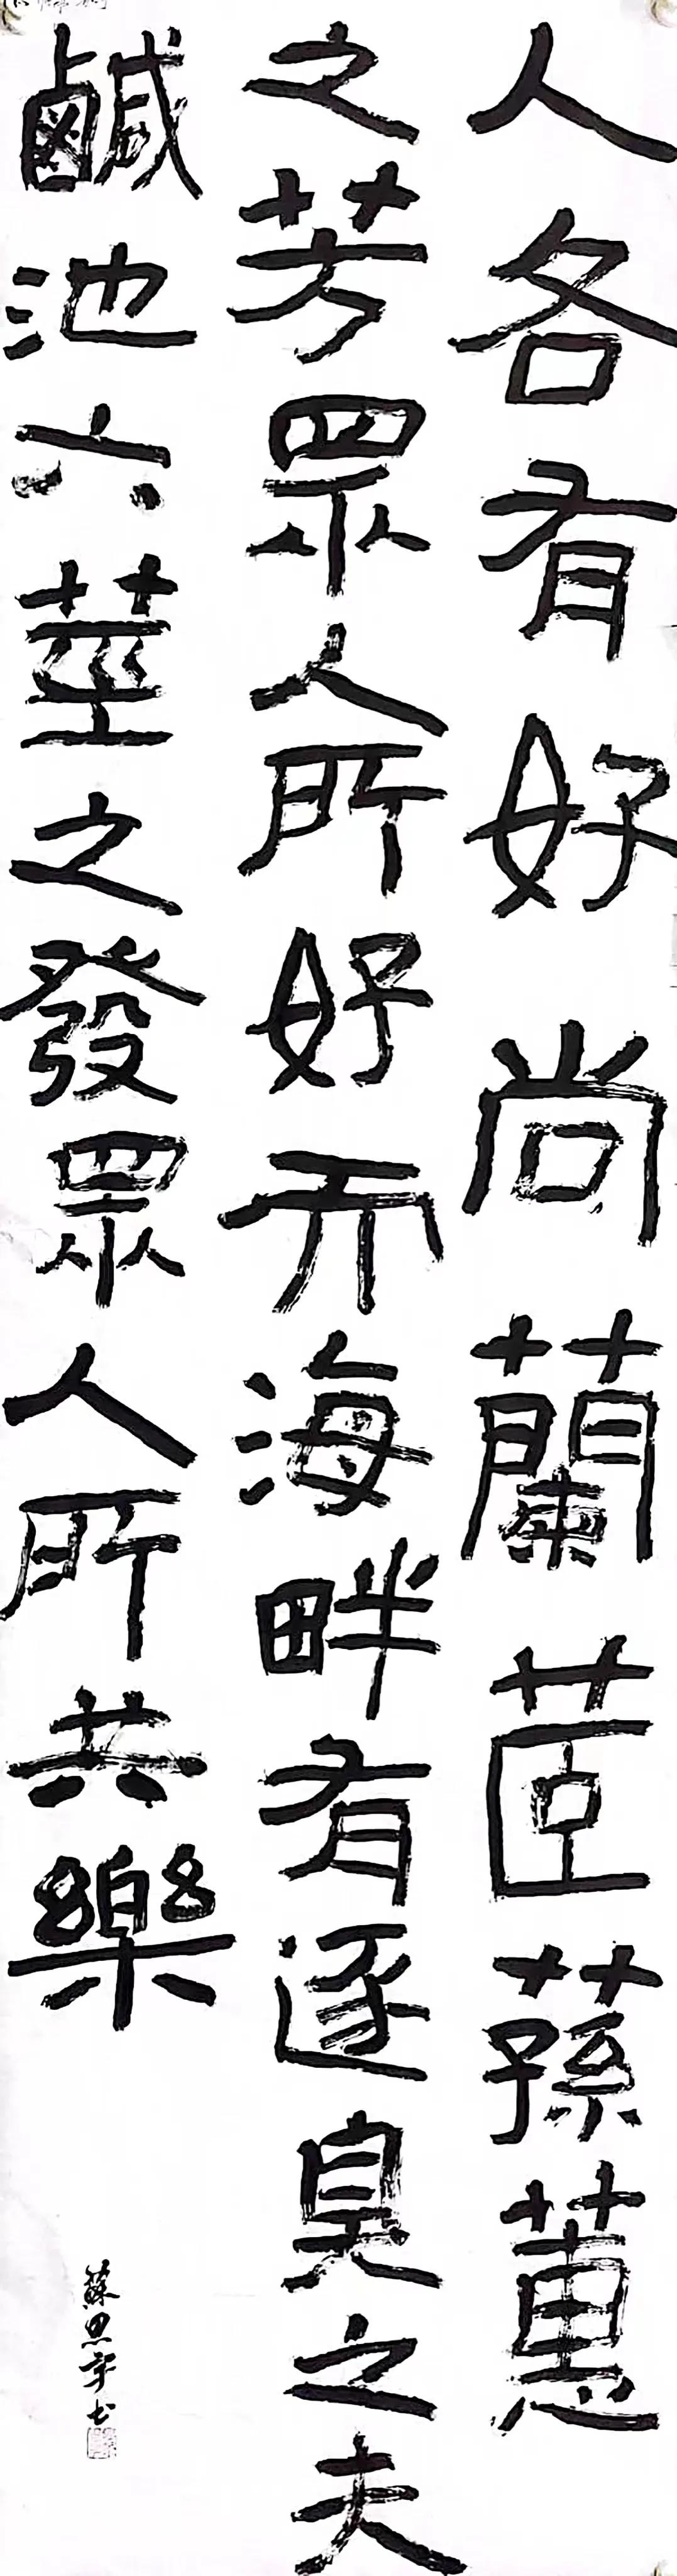 人各有好尚蘭茞蓀蕙
之芳眾人所好而海畔有逐臭之夫
鹹池六莖之發眾人所共樂
蘇思书